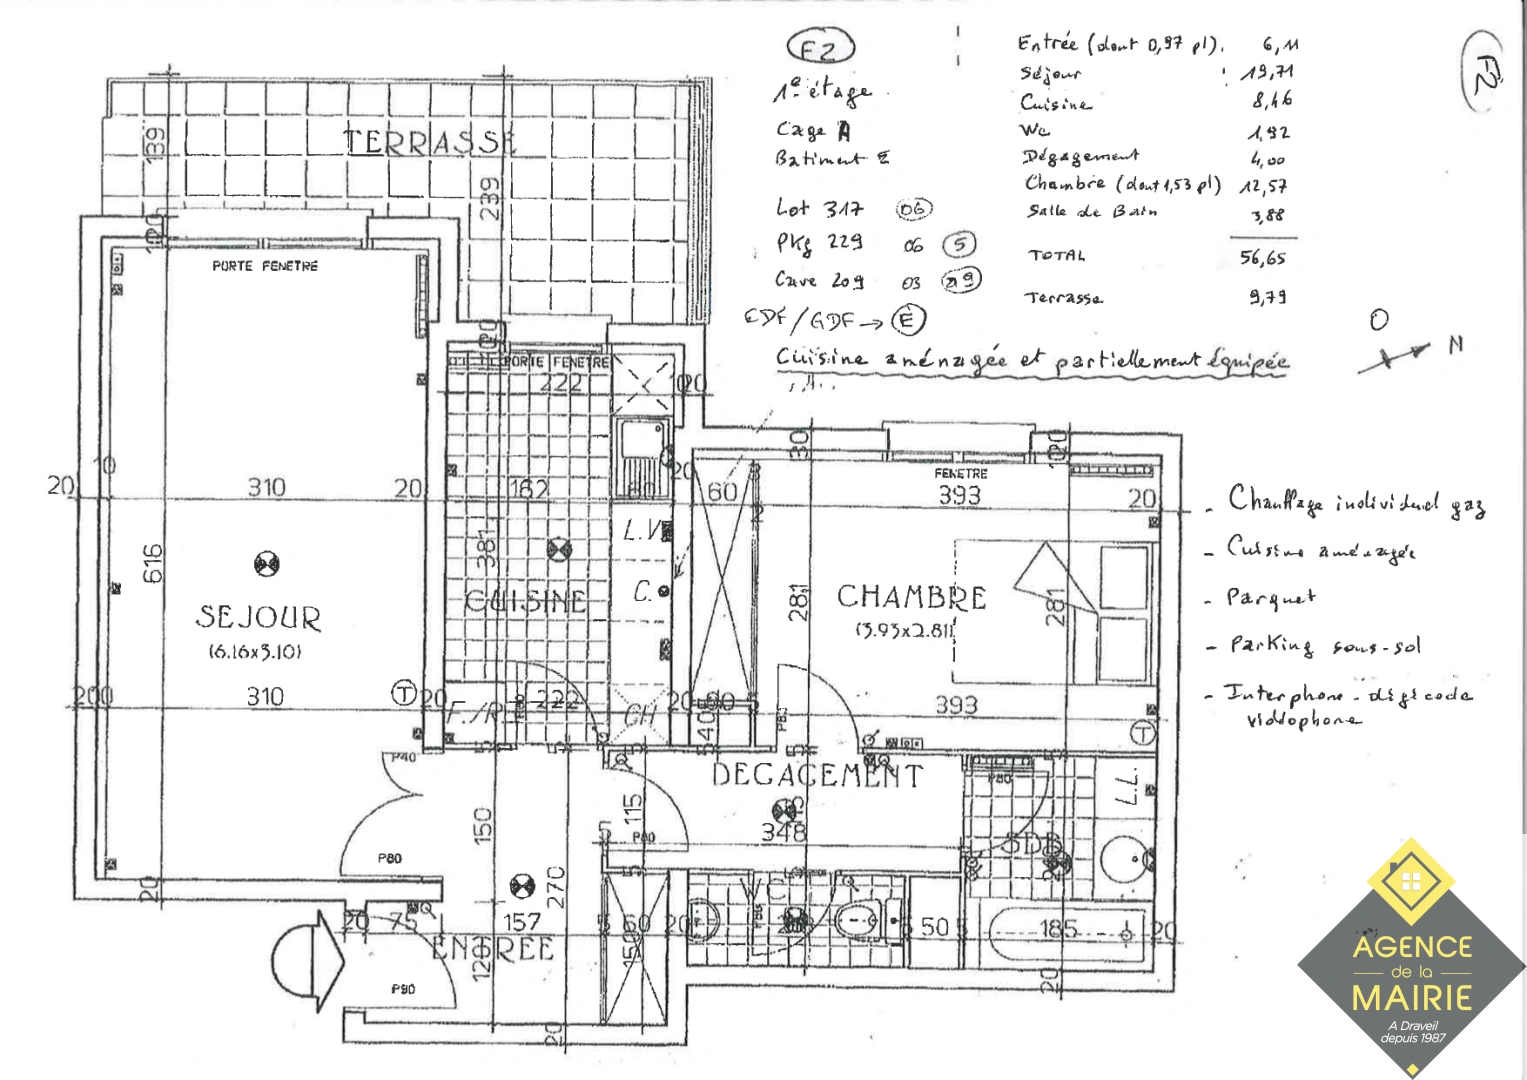 F2
1º étage
Cage A
Batiment E
Lot 317 06
Pkg 229 06 5
Cave 209 03 29
EDF/GDF → E
Entrée (dont 0,97 pl). 6,11
Séjour 19,71
Cuisine 8,46
Wc 1,92
Dégagement 4,00
Chambre (dont 1,53 pl) 12,57
Salle de Bain 3,88
TOTAL 56,65
Terrasse 9,79
Cuisine aménagée et partiellement équipée
F2
O
N
TERRASSE
139
239
120
PORTE FENETRE
120
PORTE FENETRE
222
20
10
20
310
20
182
60
20
60
30
120
FENETRE
393
20
616
381
L.V
C.
CUISINE
281
281
CHAMBRE
(3.93x2.81)
SEJOUR
(6.16x3.10)
200
310
T
20
F./R
P80
222
CH
20
40
P83
393
T
- Chauffage individuel gaz
- Cuisine aménagée
- Parquet
- Parking sous-sol
- Interphone - digicode
vidéophone
P40
5
5
5
5
DEGAGEMENT
P80
L.L
150
115
P80
348
SDB
P80
270
5
WC
P80
20
20
75
157
5
60
20
50
5
185
20
ENTREE
120
150
P90
20
20
AGENCE
de la
MAIRIE
A Draveil
depuis 1987